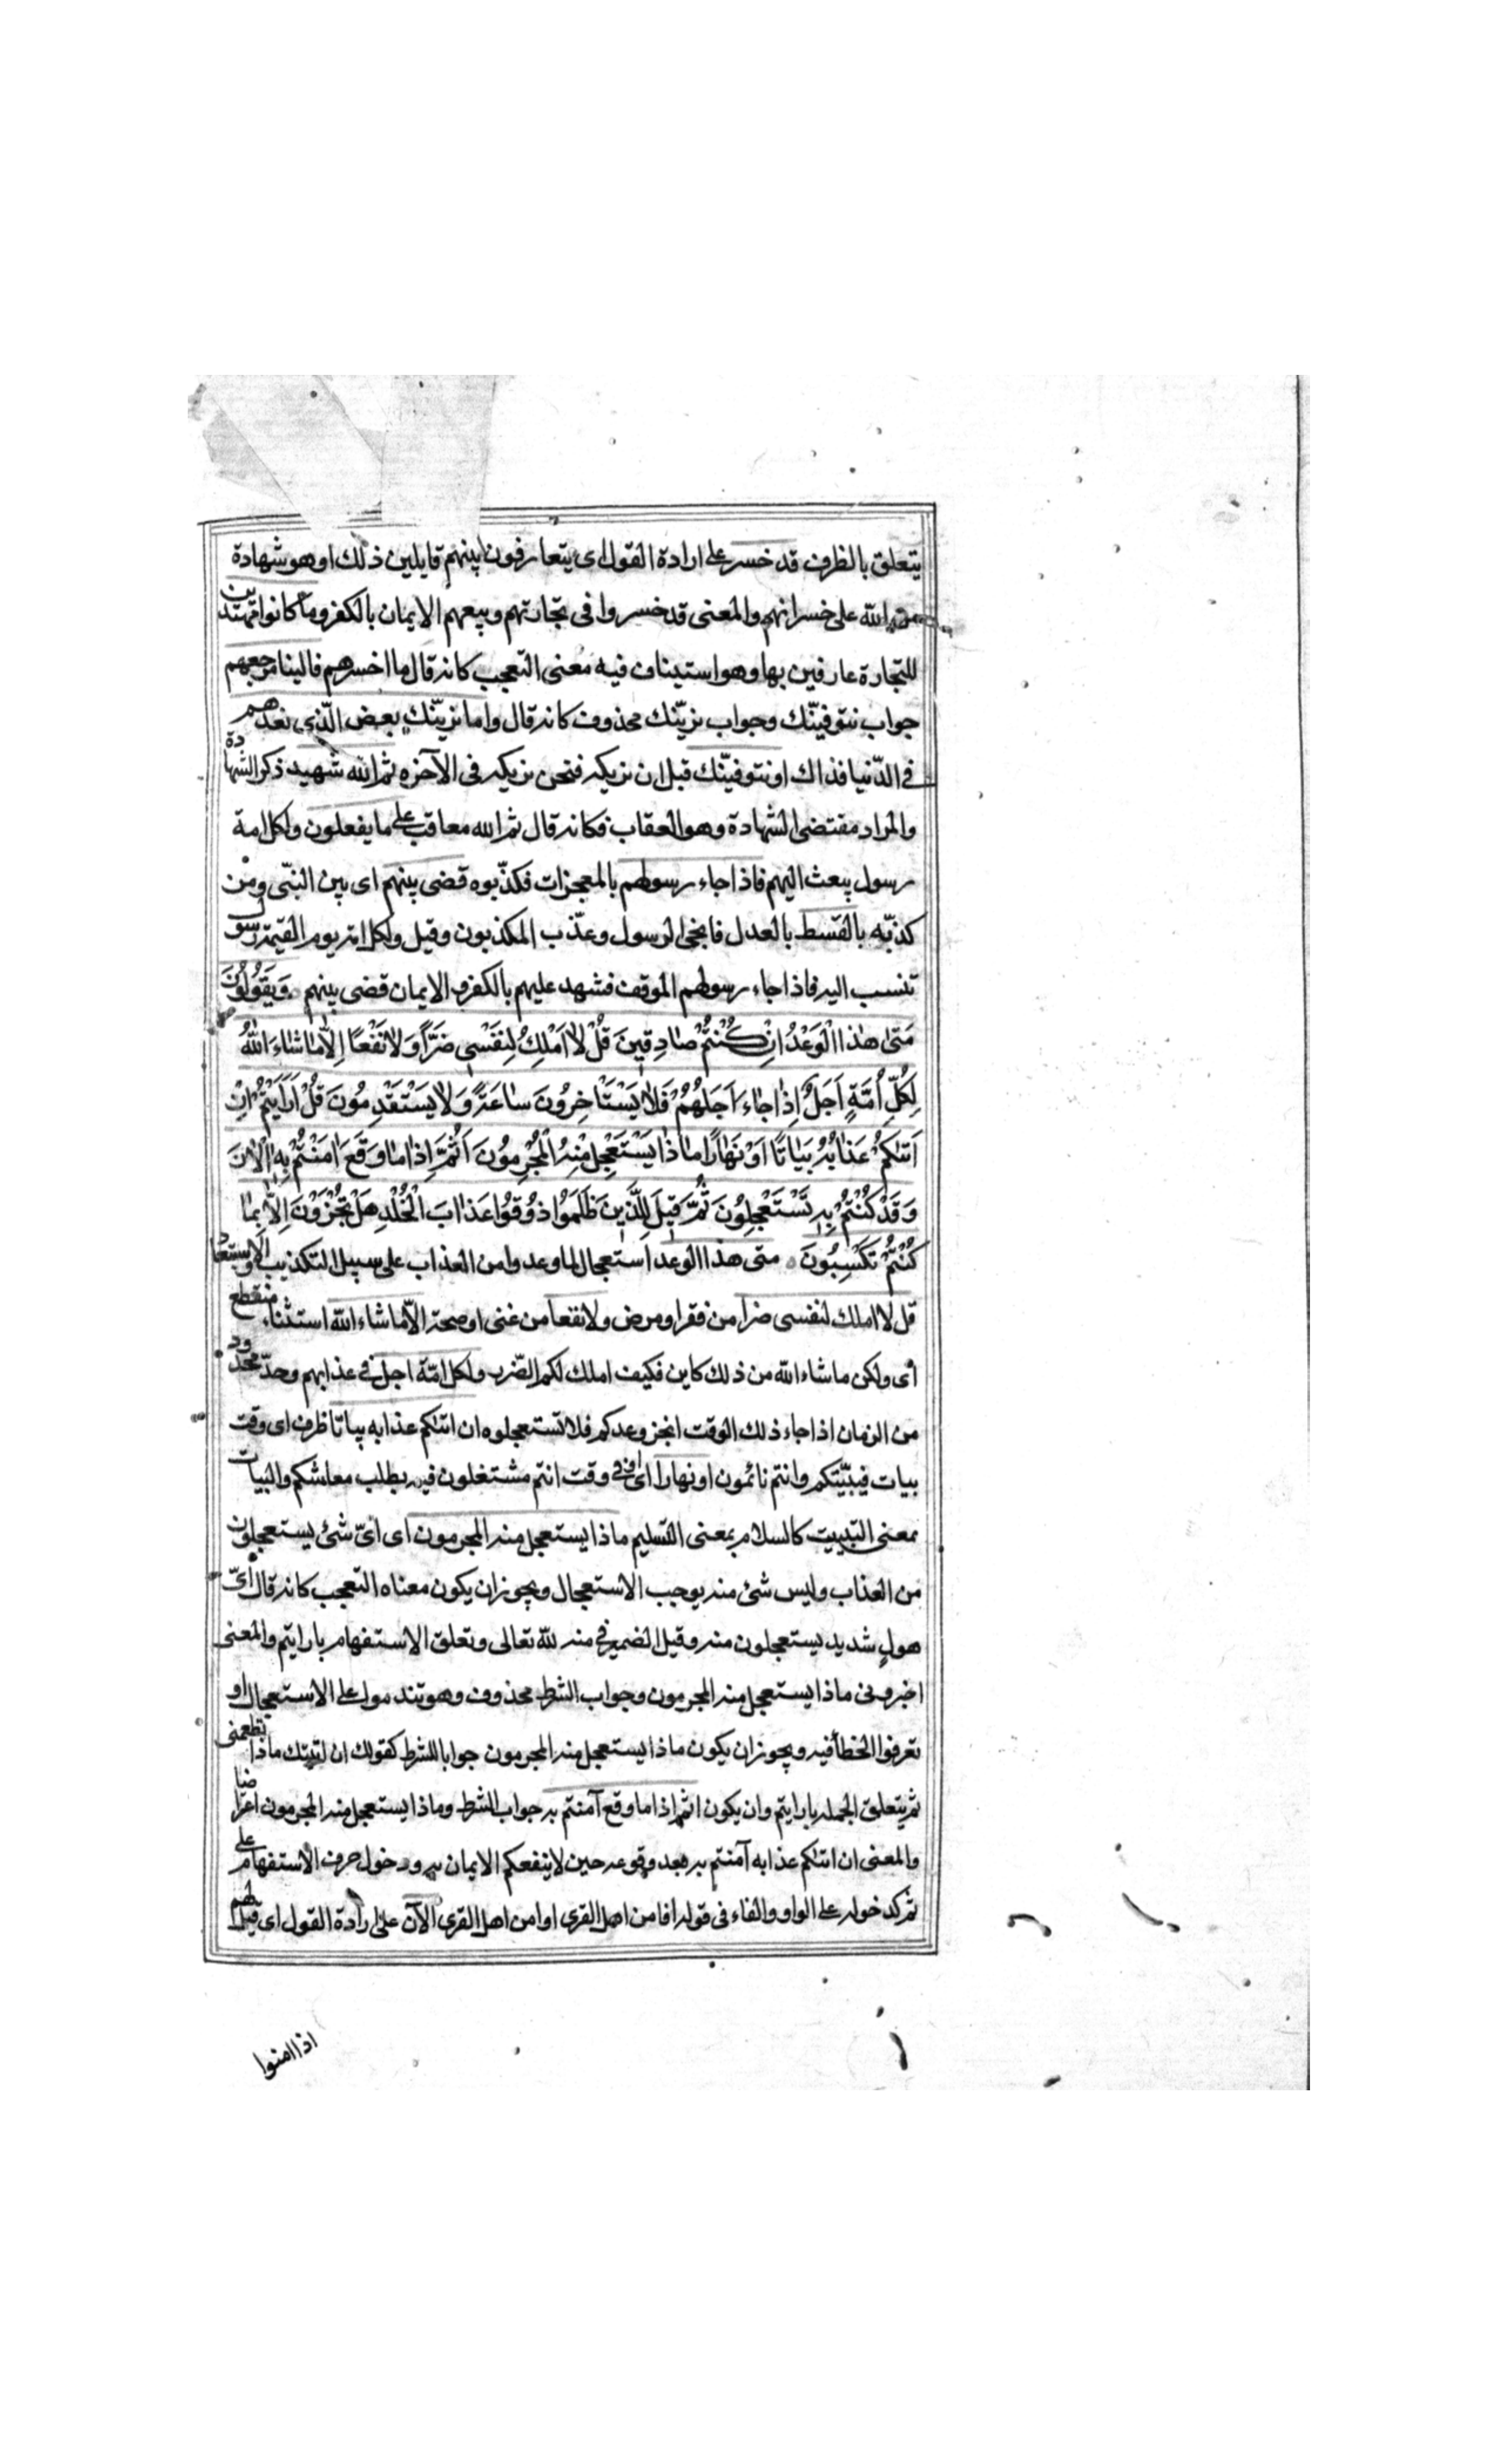 يتعلق بالظرف قد خسر على ارادة القول اى يتعارفون بينهم قايلين ذلك او هو شهادة
من الله على خسرانهم والمعنى قد خسروا فى تجارتهم وبيعهم الايمان بالكفر وما كانوا مهتدين
للتجارة عارفين بها وهو استيناف فيه معنى التعجب كانه قال ما اخسرهم فالينا مرجعهم
جواب نتوفينّك وجواب نرينّك محذوف كانه قال واما نرينّك بعض الّذى نعدهم
فى الدّنيا فذاك او نتوفينّك قبل ان نريكه فنحن نريكه فى الآخره ثم الله شهيد ذكر الشهادة
والمراد مقتضى الشهادة وهو العقاب فكانه قال ثم الله معاقب على ما يفعلون ولكل امة
رسول يبعث اليهم فاذا جاء رسولهم بالمعجزات فكذّبوه قضى بينهم اى بين النبّى ومن
كذبّه بالقسط بالعدل فانجى الرسول وعذّب المكذبون وقيل ولكل امة يوم القيمة رسول
تنسب اليه فاذا جاء رسولهم الموقف فشهد عليهم بالكفر والايمان قضى بينهم وَيَقُولُونَ
مَتىٰ هٰذَا الْوَعْدُ اِنْ كُنْتُمْ صٰادِقِينَ قُلْ لاٰ اَمْلِكُ لِنَفْسِى ضَرًّا وَلاٰ نَفْعًا اِلاّٰ مٰا شٰاءَ اللّٰهُ
لِكُلِّ اُمَّةٍ اَجَلٌ اِذٰا جٰاءَ اَجَلُهُمْ فَلاٰ يَسْتَاْخِرُونَ سٰاعَةً وَلاٰ يَسْتَقْدِمُونَ قُلْ اَرَاَيْتُمْ اِنْ
اَتٰىكُمْ عَذٰابُهُ بَيٰاتًا اَوْ نَهٰارًا مٰا ذٰا يَسْتَعْجِلُ مِنْهُ الْمُجْرِمُونَ اَثُمَّ اِذٰا مٰا وَقَعَ اٰمَنْتُمْ بِهِ اٰلْاٰنَ
وَقَدْ كُنْتُمْ بِهِ تَسْتَعْجِلُونَ ثُمَّ قِيلَ لِلَّذِينَ ظَلَمُوا ذُوقُوا عَذٰابَ الْخُلْدِ هَلْ تُجْزَوْنَ اِلاّٰ بِمٰا
كُنْتُمْ تَكْسِبُونَ متى هذا الوعد استعجال لما وعدوا من العذاب على سبيل التكذيب والاستبعاد
قل لا املك لنفسى ضرا من فقر او مرض ولا نفعا من غنى او صحة الاّ ما شاء الله استثناء منقطع
أى ولكن ما شاء الله من ذلك كاين فكيف املك لكم الضّرب ولكل امّة اجل فى عذابهم وحدّ محدود
من الزمان اذا جاء ذلك الوقت انجز وعدكم فلا تستعجلوه ان اتٰىكم عذابه بياتا ظرف اى وقت
بيات فيبيّتكم وانتم نائمون او نهارا اى فى وقت انتم مشتغلون فيه بطلب معاشكم والبيات
بمعنى التبييت كالسلام بمعنى التسليم ماذا يستعجل منه المجرمون اى اىّ شئ يستعجلون
من العذاب وليس شئ منه يوجب الاستعجال ويجوز ان يكون معناه التعجب كانه قال اىّ
هول شديد يستعجلون منه وقيل الضمير فى منه لله تعالى وتعلق الاستفهام بارايتم والمعنى
اخبرونى ماذا يستعجل منه المجرمون وجواب الشرط محذوف وهو تندموا على الاستعجال او
تعرفوا الخطأ فيه ويجوز ان يكون ماذا يستعجل منه المجرمون جوابا للشرط كقولك ان اتيتك ماذا تطعمنى
ثم يتعلق الجمله بارايتم وان يكون اثم اذا ما وقع آمنتم به جواب الشرط وماذا يستعجل منه المجرمون اعتراضا
والمعنى ان اتٰىكم عذابه آمنتم به بعد وقوعه حين لا ينفعكم الايمان به ودخول حرف الاستفهام على
ثم كدخوله على الواو والفاء فى قوله افامن اهل القرى اوامن اهل القرى الآن على ارادة القول اى قيل لهم
اذا امنوا